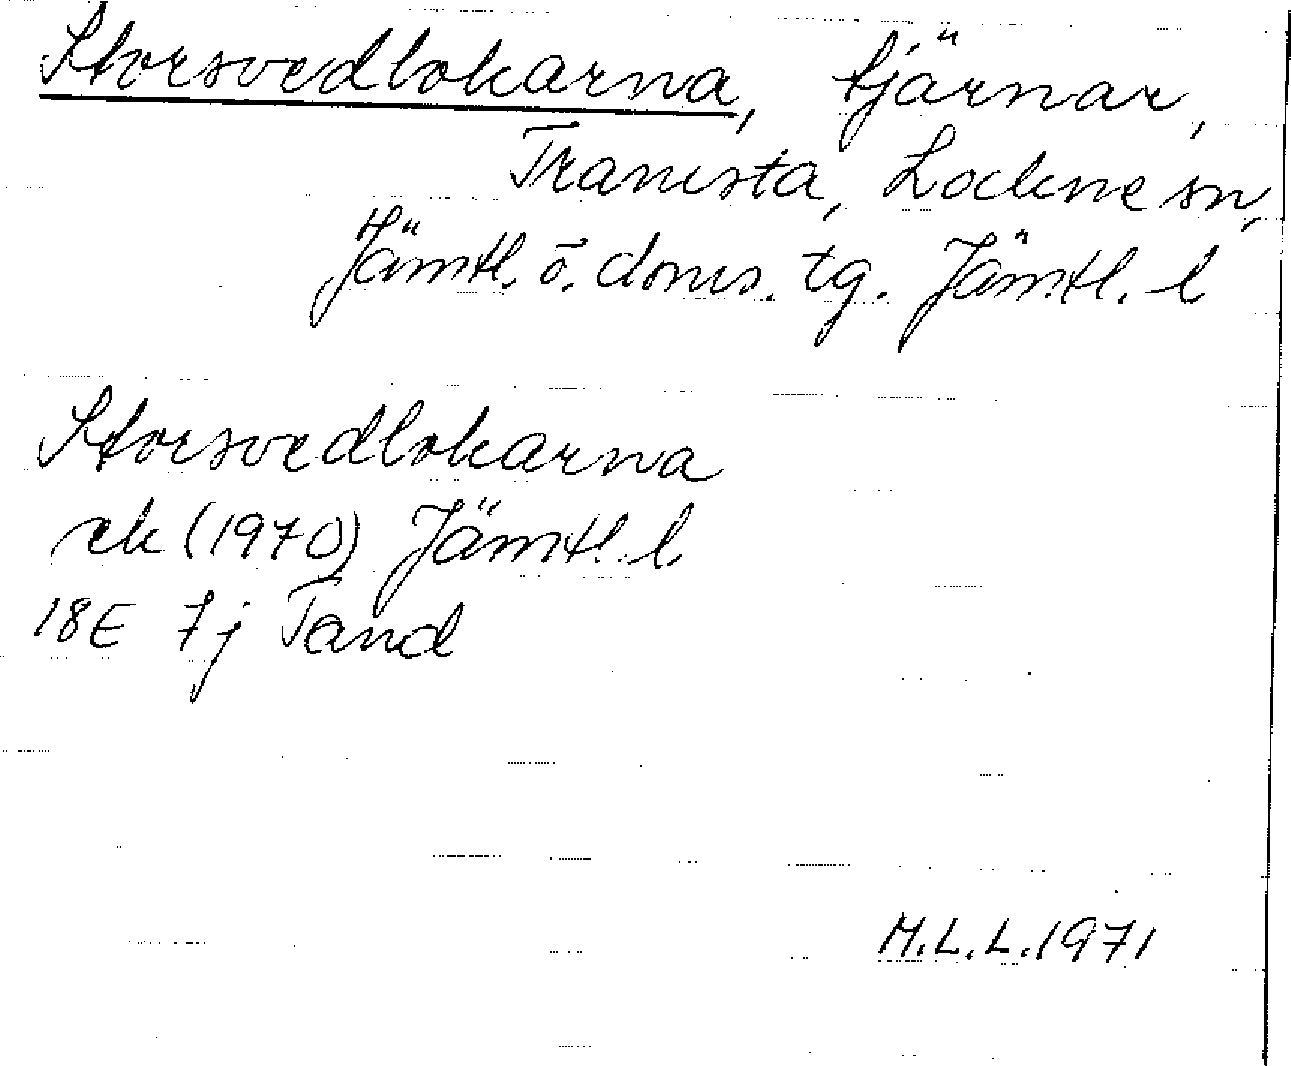 Storsvedlokarna, tjärnar,
Tramsta, Lockne sn,
Jämtl. ö. doms. tg. Jämtl. l
Storsvedlokarna
ek (1970) Jämtl. l.
18E 7j Tand
M.L.L. 1971